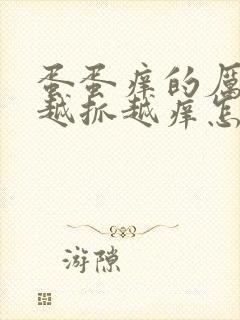 蛋蛋痒的厉
越抓越痒怎
游隙